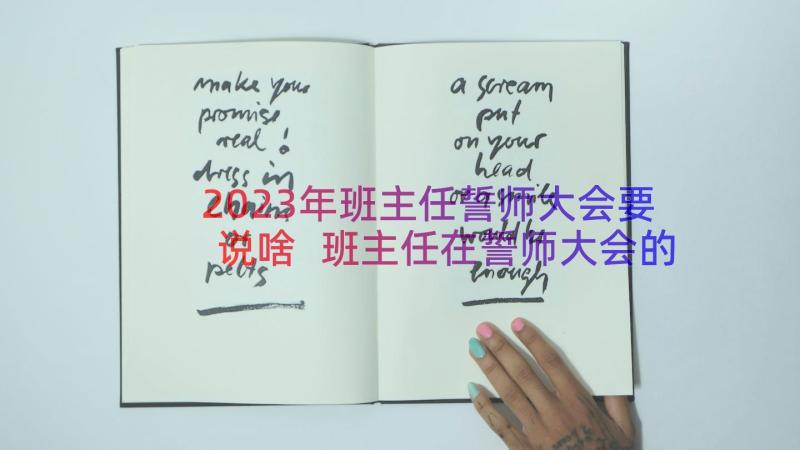 make your
promise
real!
dress in
chains
or
pelts
a scream
put
on your
head
or a smile
would be
enough
2023年班主任誓师大会要
说啥 班主任在誓师大会的